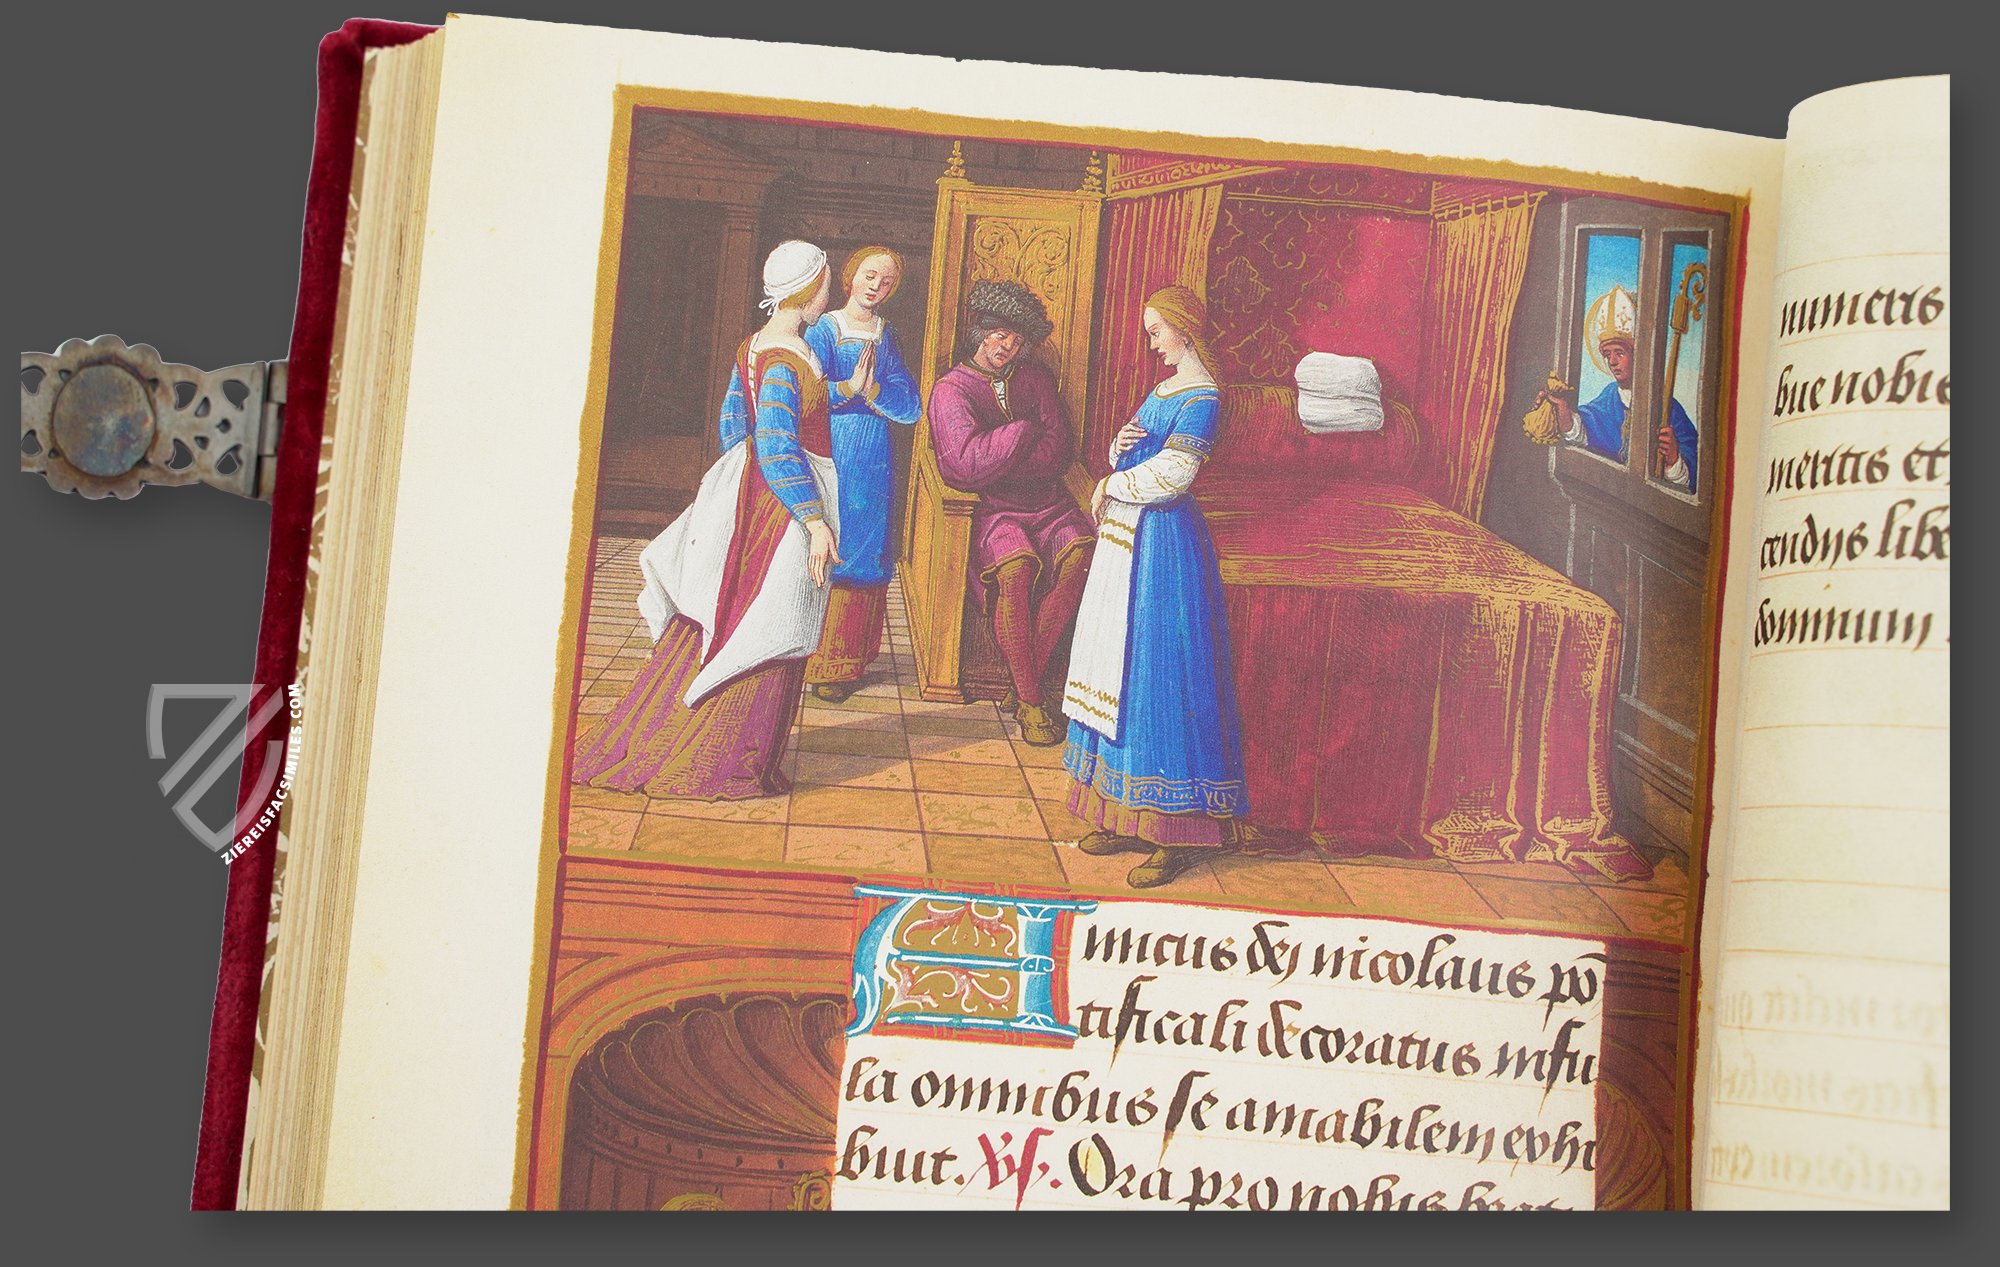 Amicus dei nicolaus po
tificali decoratus infu
la omnibus se amabilem exhi
buit. Vs. Ora pro nobis beat
numeris
bue nobis
meritis et
cendijs libe
dominum
ZIEREISFACSIMILES.COM